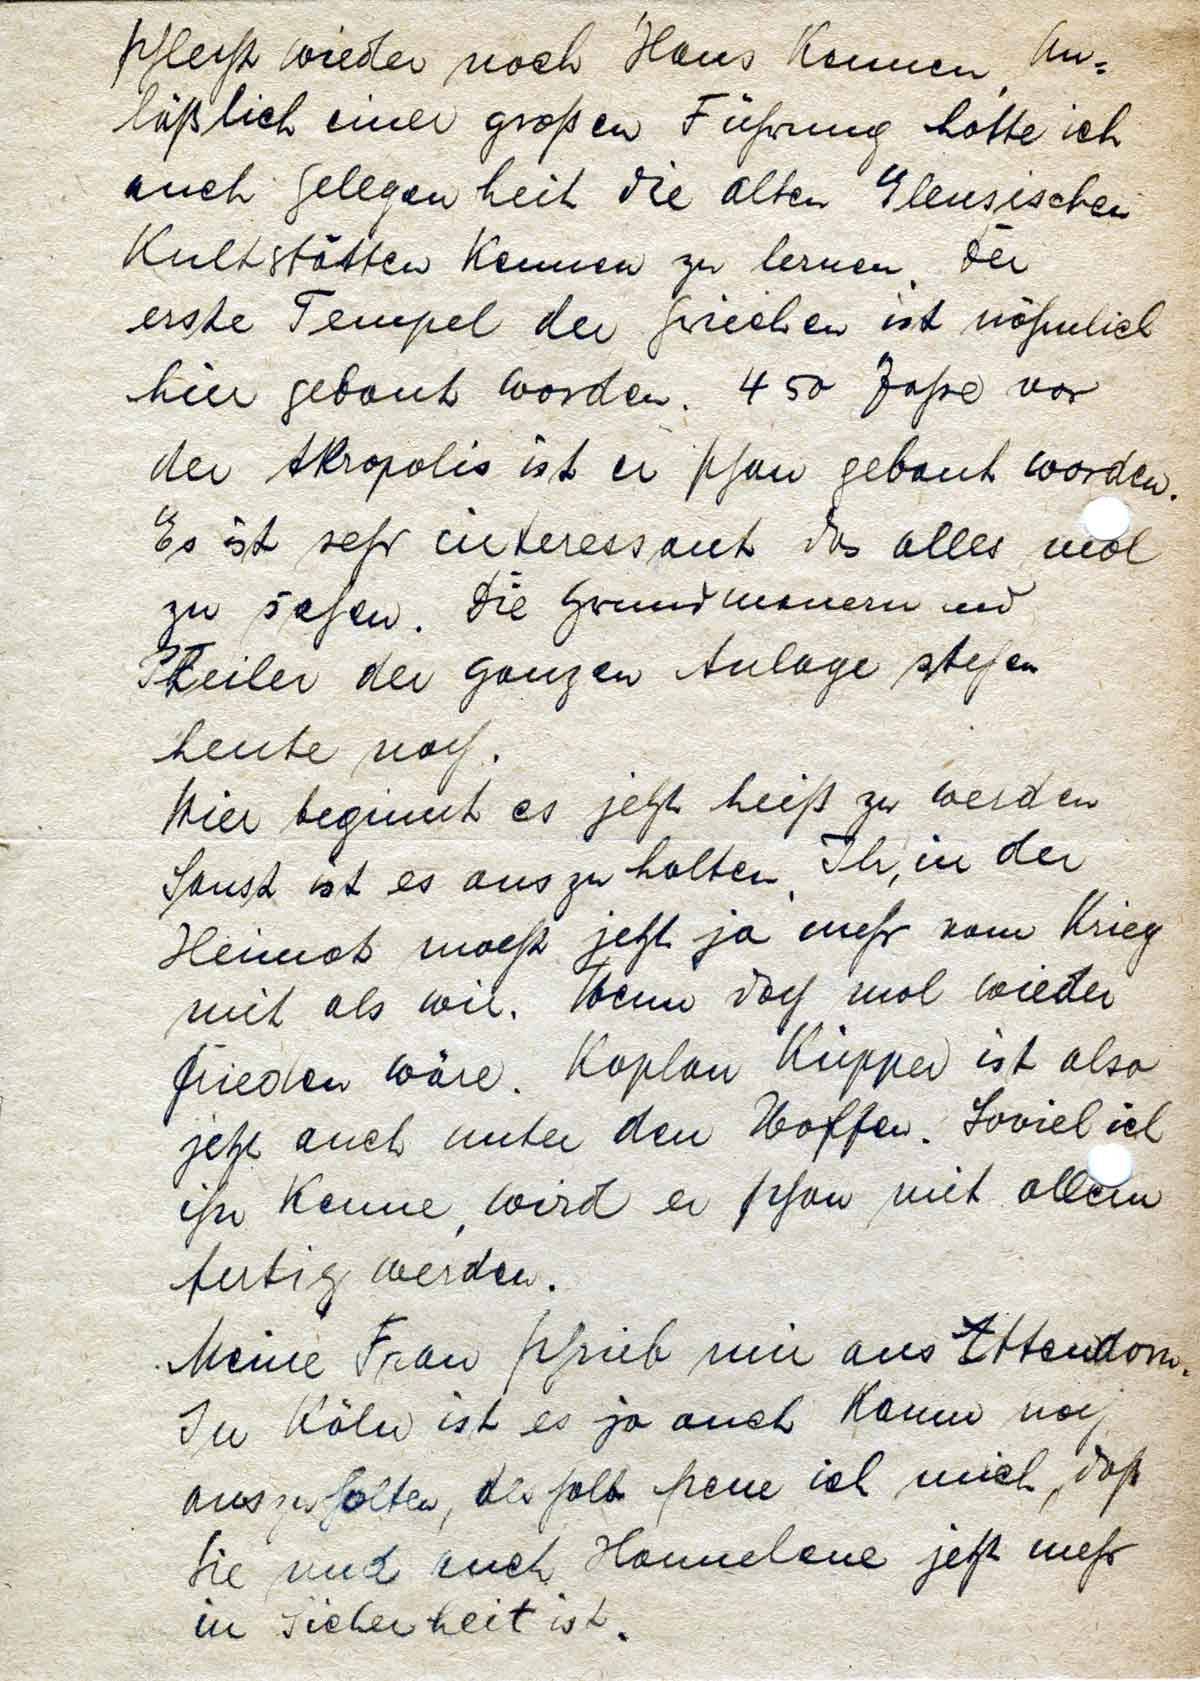 schleßt wieder nach Haus kommen. An=
läßlich einer großen Führung hatte ich
auch Gelegenheit die alten Eleusischen
Kultstätten kennen zu lernen. Der
erste Tempel der Griechen ist nähmlich
hier gebaut worden. 450 Jahre vor
der Akropolis ist er schon gebaut worden.
Es ist sehr interessant das alles mal
zu sehen. Die Grundmauern und
Pfeiler der ganzen Anlage stehen
heute noch.
Hier beginnt es jetzt heiß zu werden
Sonst ist es auszuhalten. Ihr, in der
Heimat macht jetzt ja mehr vom Krieg
mit als wir. Wenn doch mal wieder
Frieden wäre. Kaplan Küpper ist also
jetzt auch unter den Waffen. Soviel ich
ihn kenne, wird er schon mit allem
fertig werden.
Meine Frau schrieb mir aus Attendorn.
In Köln ist es ja auch kaum noch
auszuhalten, deshalb freue ich mich, daß
Sie und auch Hannelene jetzt mehr
in Sicherheit ist.